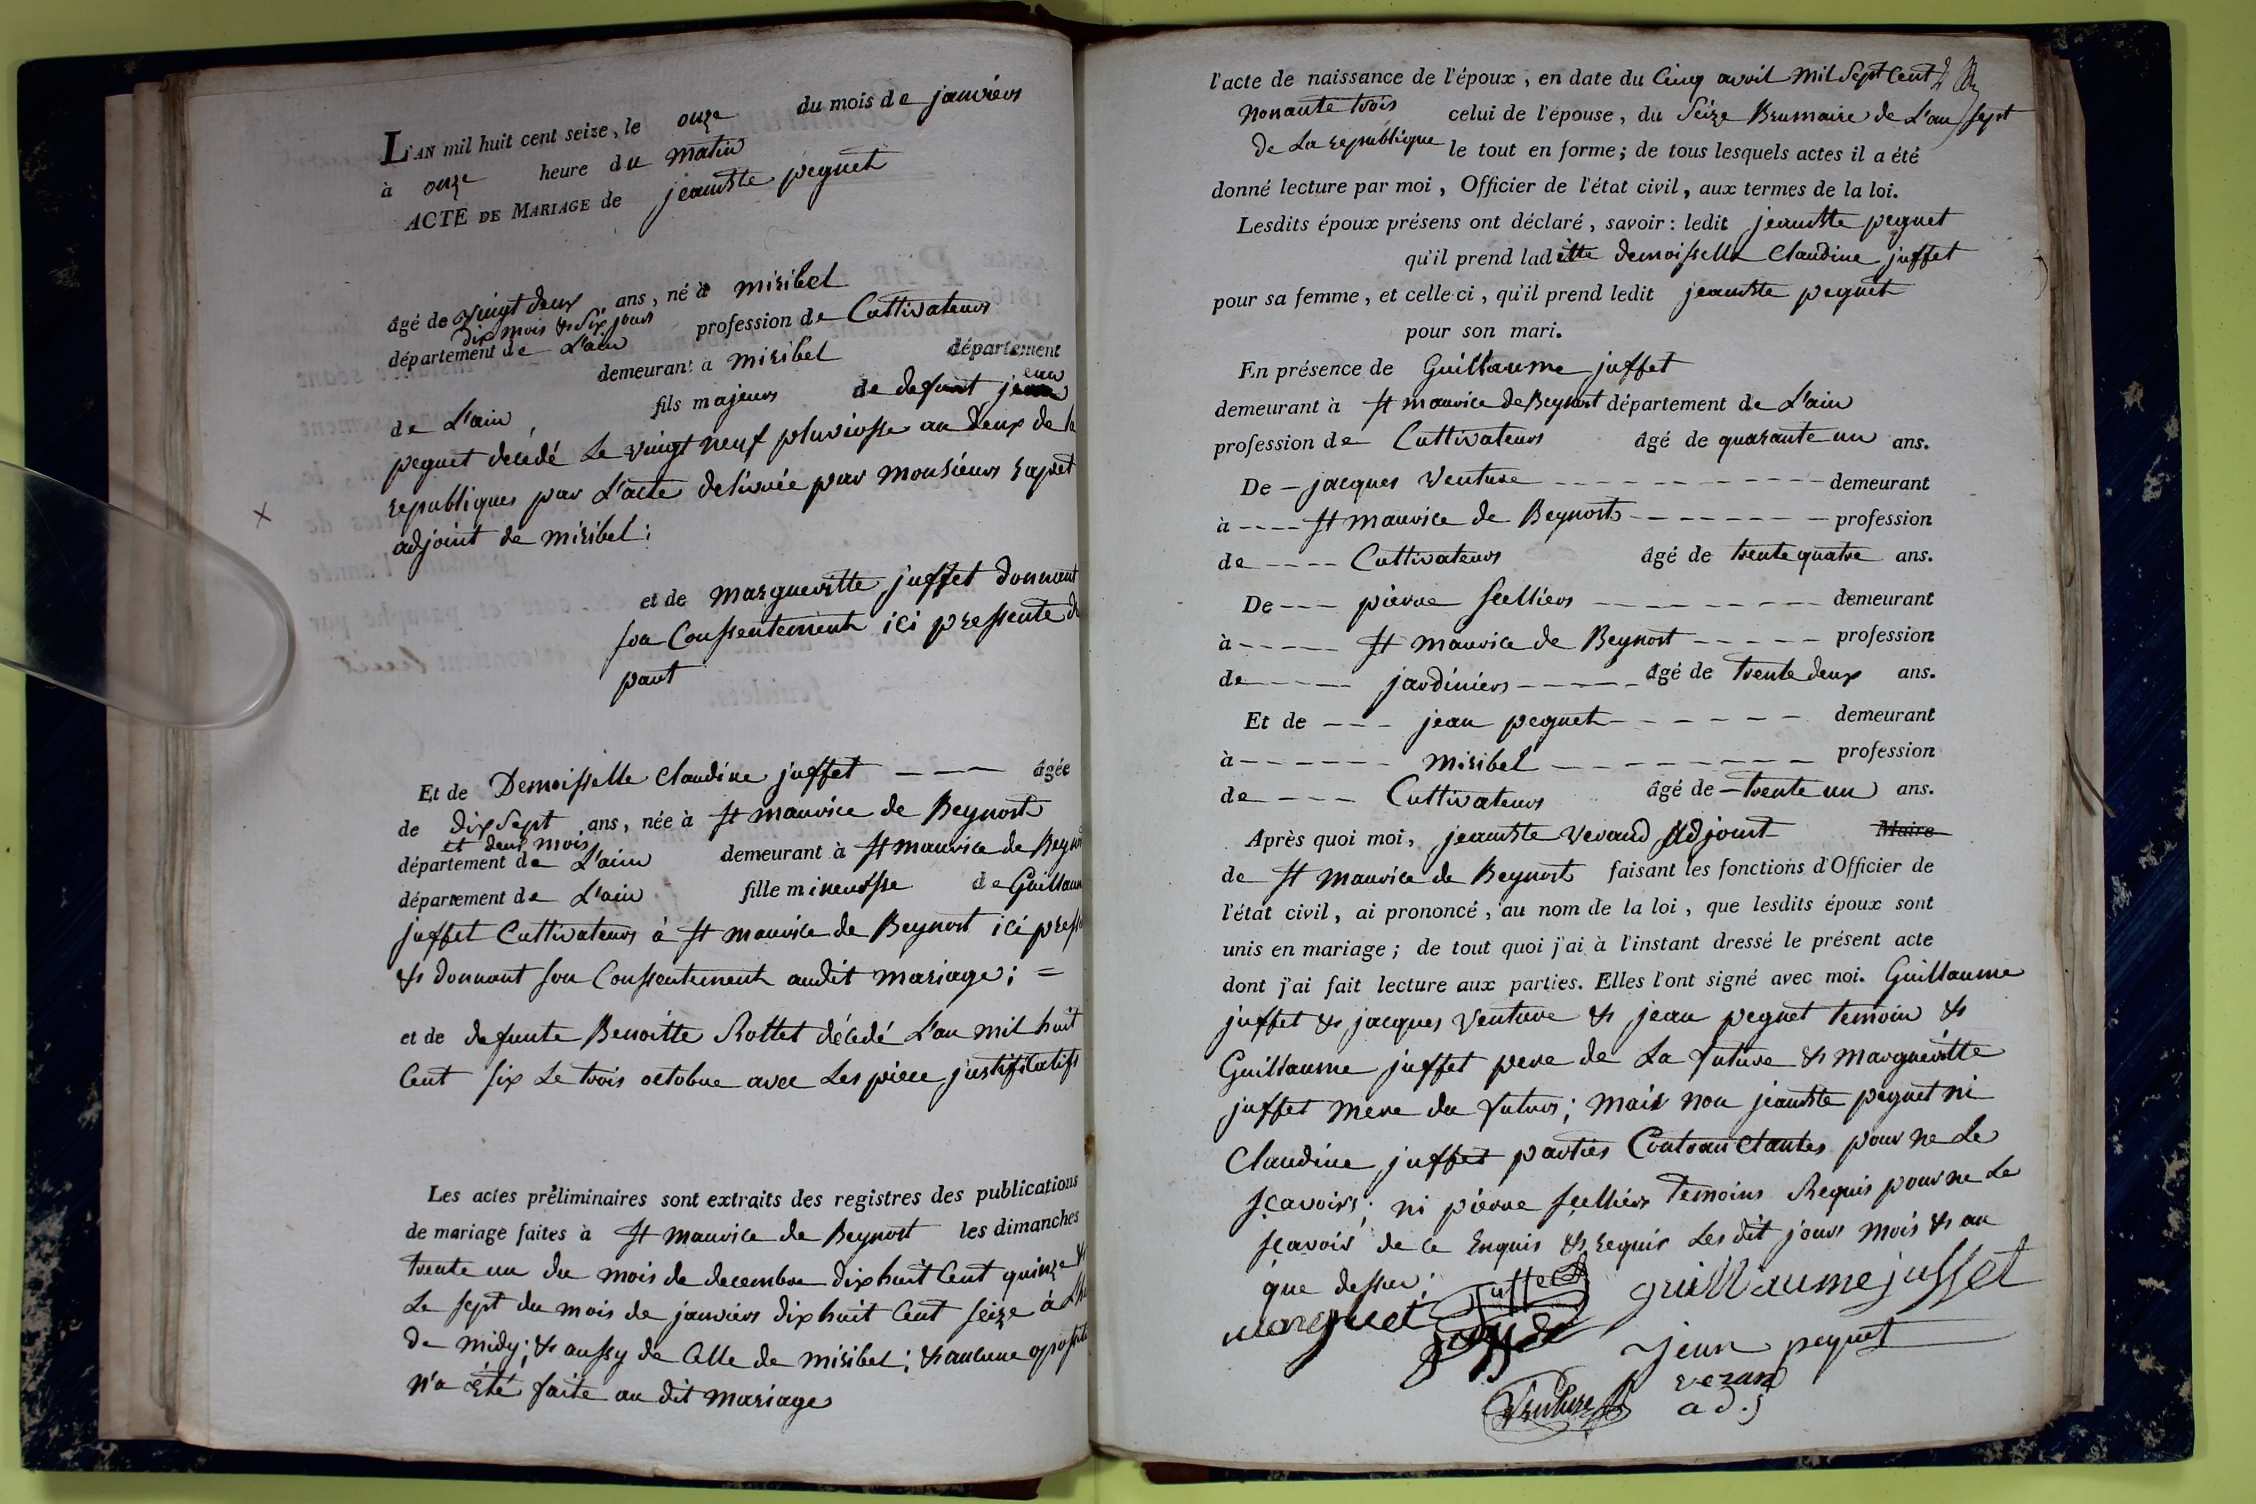 L'AN mil huit cent seize, le onze du mois de janviers
à onze heure du matin
ACTE DE MARIAGE de jeanbte peguet
âgé de vingt deux ans, né à miribel
dix mois & six jours
département de L'ain profession de Cultivateurs
demeurant à miribel département
de L'ain, fils majeurs de defunt jean
peguet décédé Le vingt neuf pluviosse an deux de la
republiques par L'acte delivrée par monsieurs rapet
adjoint de miribel;
et de margueritte juffet donnant
son Conssentement ici pressente
pant
Et de Demoisselle Claudine juffet --- âgée
de dix sept ans, née à St maurice de Beynost
et deux mois
département de L'ain demeurant à St maurice de
département de L'ain fille mineursse de
juffet Cultivateurs à St maurice de Beynost ici
& donnant son Conssentement audit mariage; =
et de defunte Benoitte Rottet décedé L'an mil huit
Cent six Le trois octobre avec Les piece justificatifs
Les actes préliminaires sont extraits des registres des publications
de mariage faites à St maurice de Beynost les dimanches
trente un du mois de decembre dix huit Cent quinze &
Le sept du mois de janviers dix huit Cent seize à
de midy; & aussy de Celle de miribel; & aucune
n'a été faite au dit mariages
l'acte de naissance de l'époux, en date du Cinq avril mil sept Cent
nonante trois celui de l'épouse, du seize Brumaire de L'an sept
de La republique le tout en forme; de tous lesquels actes il a été
donné lecture par moi, Officier de l'état civil, aux termes de la loi.
Lesdits époux présens ont déclaré, savoir: ledit jeanbte peguet
qu'il prend laditte demoisselle Claudine juffet
pour sa femme, et celle-ci, qu'il prend ledit jeanbte peguet
pour son mari.
En présence de Guillaume juffet
demeurant à St maurice de Beynost département de L'ain
profession de Cultivateurs âgé de quarante un ans.
De - jacques Venture - - - demeurant
à ---- St maurice de Beynost - - - profession
de ---- Cultivateurs âgé de trente quatre ans.
De --- pierre scelliers - - - demeurant
à ----- St maurice de Beynost ----- profession
de ----- jardiniers ----- âgé de trente deux ans.
Et de --- jean peguet - - - demeurant
à ------ miribel - - - profession
de ---- Cultivateurs âgé de - trente un ans.
Après quoi moi, jeanbte verand Adjoint Maire
de St maurice de Beynost faisant les fonctions d'Officier de
l'état civil, ai prononcé, au nom de la loi, que lesdits époux sont
unis en mariage; de tout quoi j'ai à l'instant dressé le présent acte
dont j'ai fait lecture aux parties. Elles l'ont signé avec moi. Guillaume
juffet & jacques Venture & jean peguet temoin &
Guillaume juffet pere de La future & margueritte
juffet mere du futurs; mais non jeanbte peguet ni
Claudine juffet parties Contraictantes pour ne Le
sçavoirs; ni pierre scelliers temoins Requis pour ne Le
sçavoir de ce Enquis & requis Les dit jours mois & an
que dessus;
marguet juffet guillaume juffet
jean peguet
Venture verand
adj